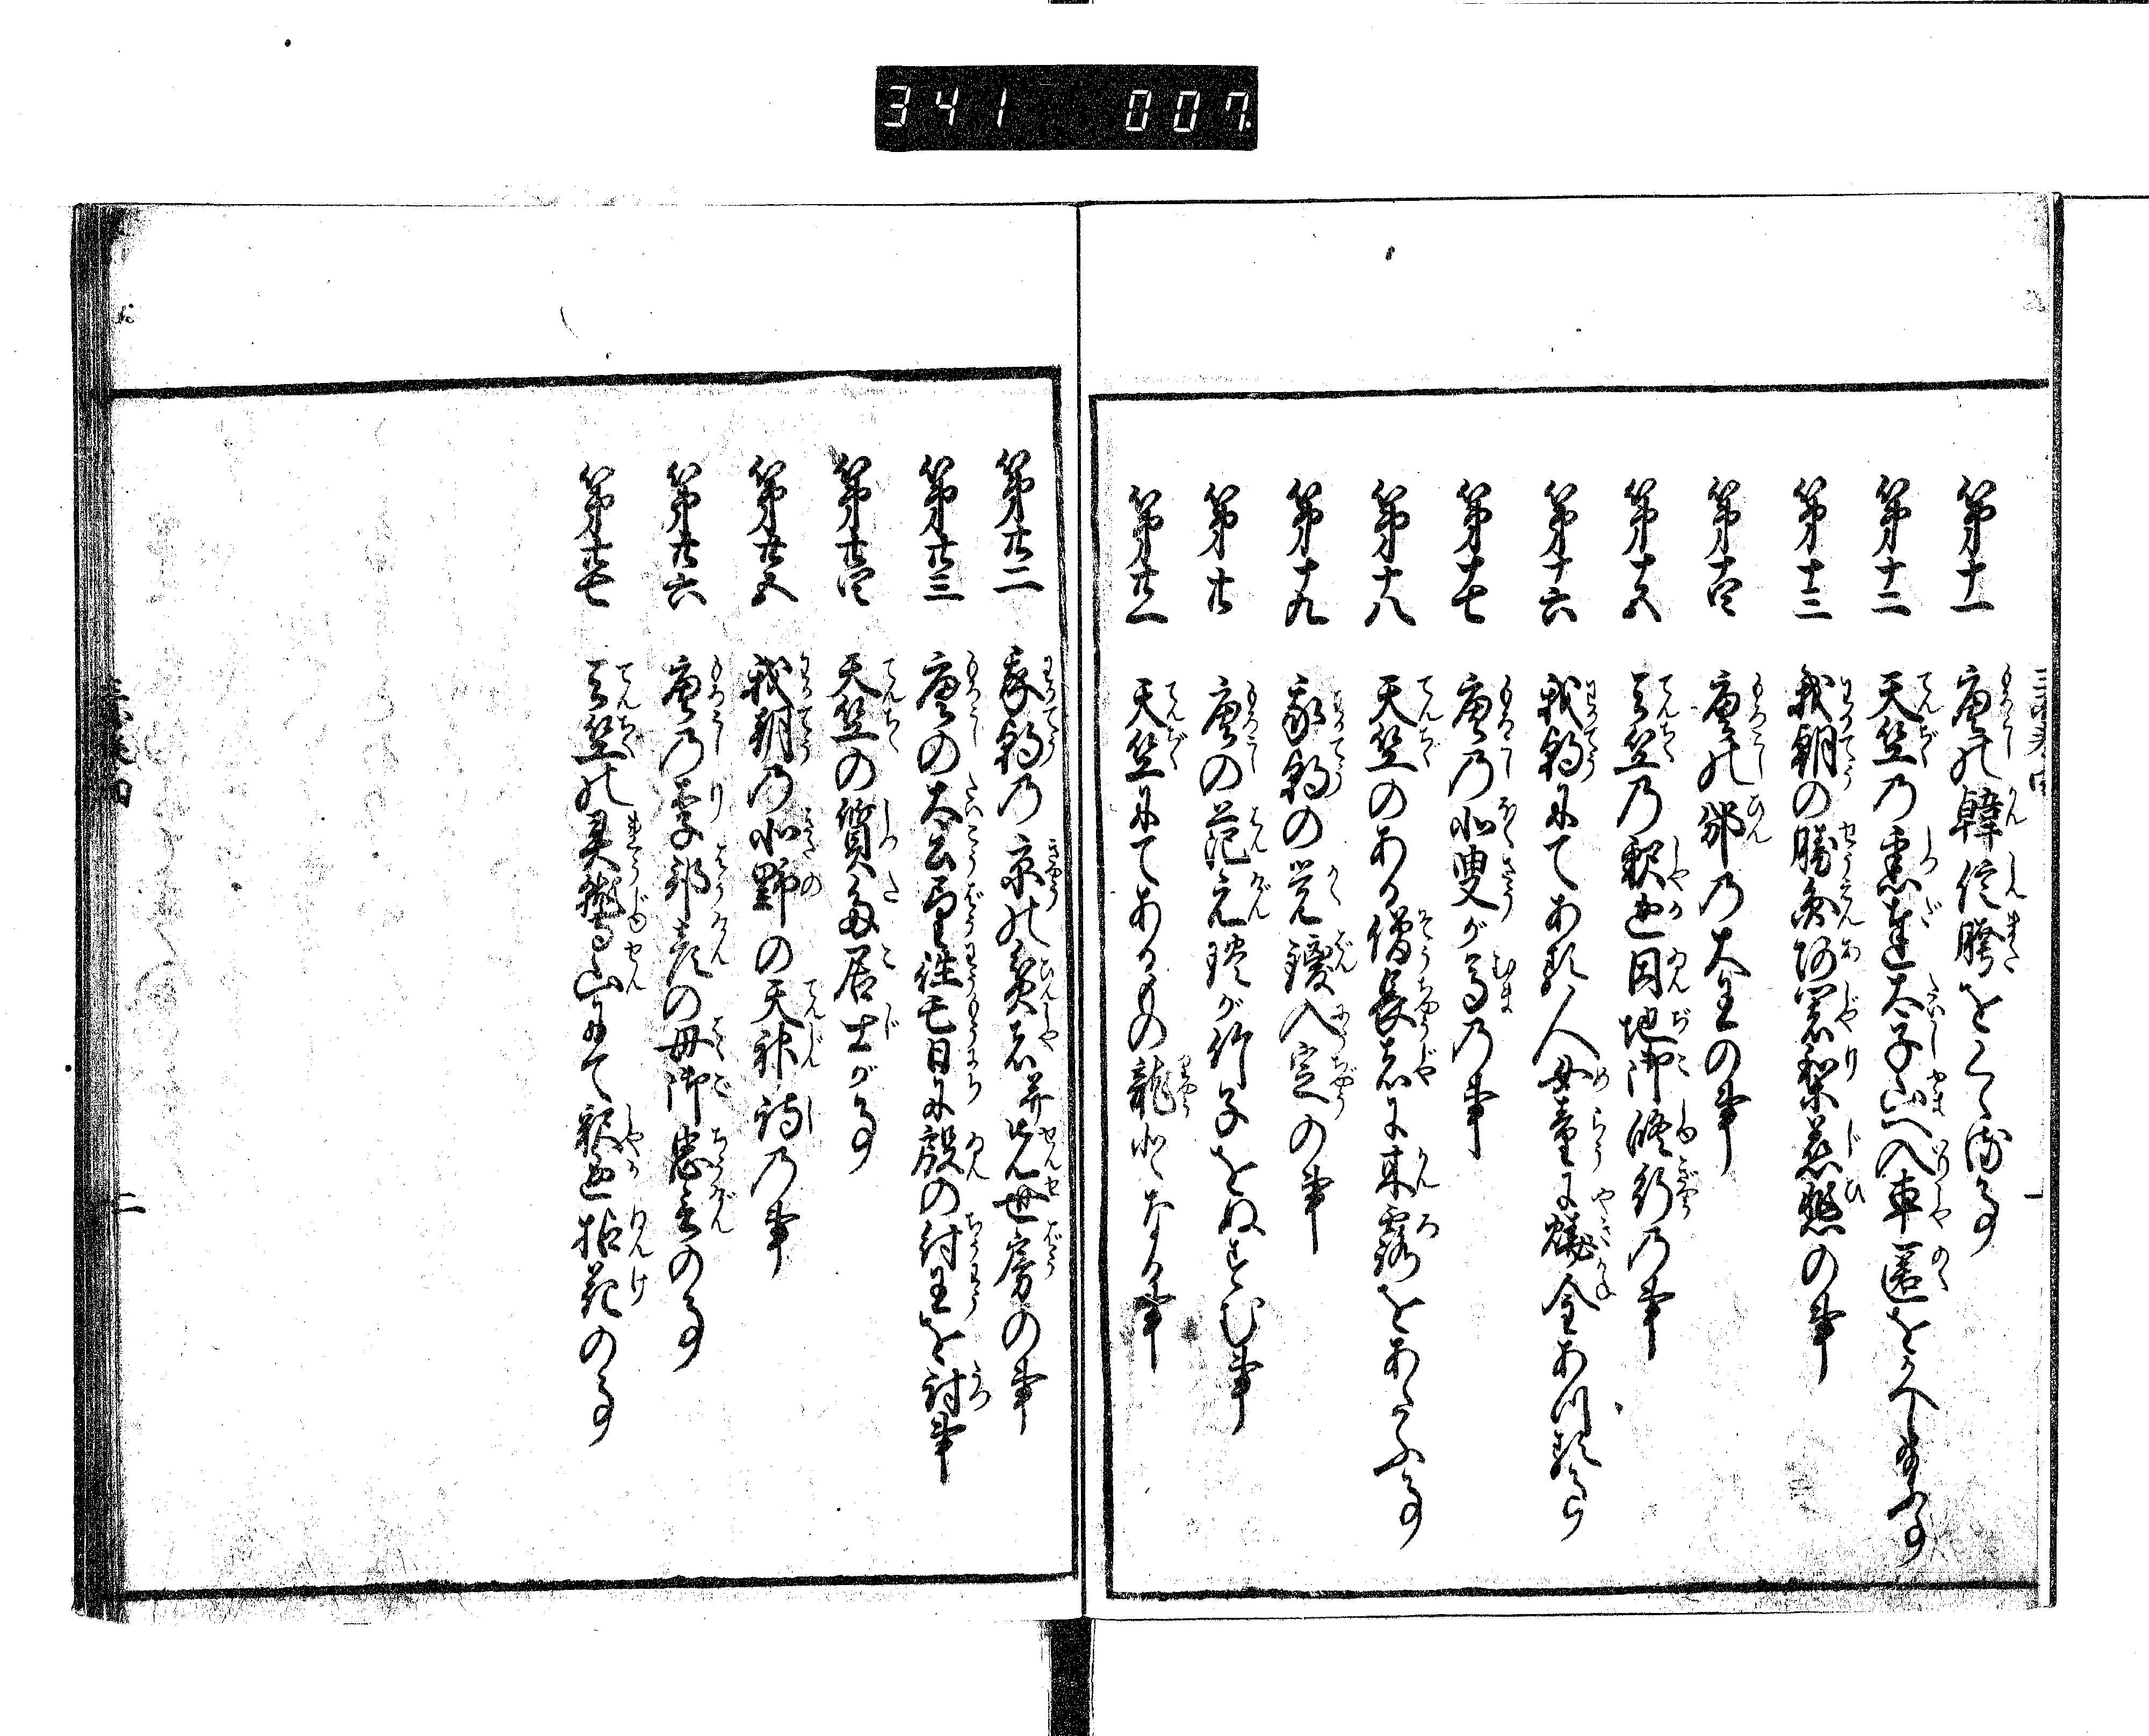 341 007
第十一 唐の韓信胯をくゞる事
第十二 天竺乃悉達太子山へ入車匿をかへし給ふ事
第十三 我朝の勝算阿闍梨慈悲の事
第十四 唐の邠乃大王の事
第十五 天竺乃釈迦因地御修行乃事
第十六 我朝にてある人女童に燒金あつる事
第十七 唐乃北叟が馬乃事
第十八 天竺のある僧長者に甘露をあたふ事
第十九 我朝の覚鑁入定の事
第廿 唐の范元琰が竹子をぬすむ事
第廿一 天竺にてあるもの龍になる事
第廿二 我朝乃京の貧者并先世房の事
第廿三 唐の太公望往亡日に殷の紂王を討事
第廿四 天竺の質多居士が事
第廿五 我朝乃北野の天神詩乃事
第廿六 唐乃李邦彦の母御忠言の事
第廿七 天竺の灵鷲山にて釈迦拈花の事
二